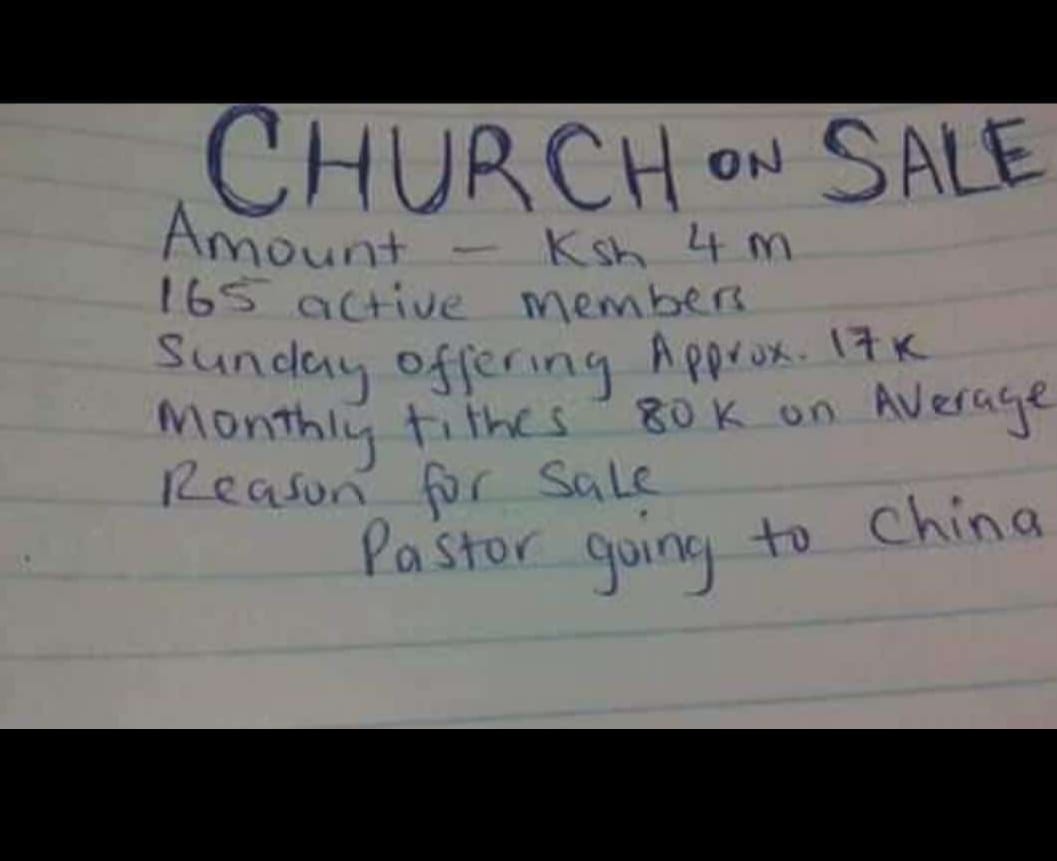 CHURCH ON SALE
Amount - Ksh 4 m
165 active members
Sunday offering Approx. 17K
Monthly tithes 80K on Average
Reason for Sale
Pastor going to China